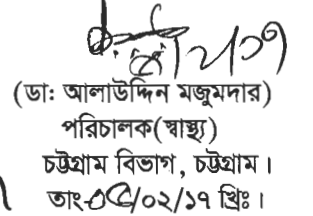 (ডা: আলাউদ্দিন মজুমদার)
পরিচালক(স্বাস্থ্য)
চট্টগ্রাম বিভাগ, চট্টগ্রাম।
তাং-০৫/০২/১৭ খ্রিঃ।